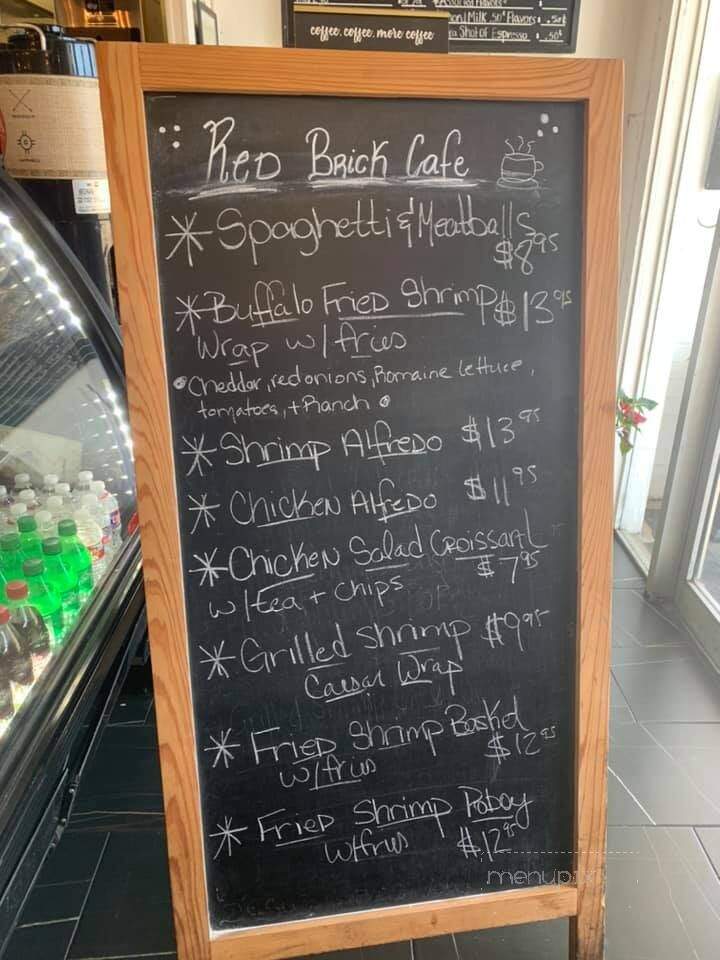 Assorted Flavors
Milk .50¢ Flavors .50¢
Shot of Espresso .50¢
coffee. coffee. more coffee
Red Brick Cafe
* Spaghetti & Meatballs
$8.95
* Buffalo Fried Shrimp $13.95
Wrap w/ fries
• Cheddar, red onions, Romaine lettuce,
tomatoes, + Ranch •
* Shrimp Alfredo $13.95
* Chicken Alfredo $11.95
* Chicken Salad Croissant
$7.95
w/ tea + chips
* Grilled shrimp $9.95
Caesar Wrap
* Fried Shrimp Basket
$12.95
w/ fries
* Fried Shrimp Poboy
w/ fries $12.95
menupix